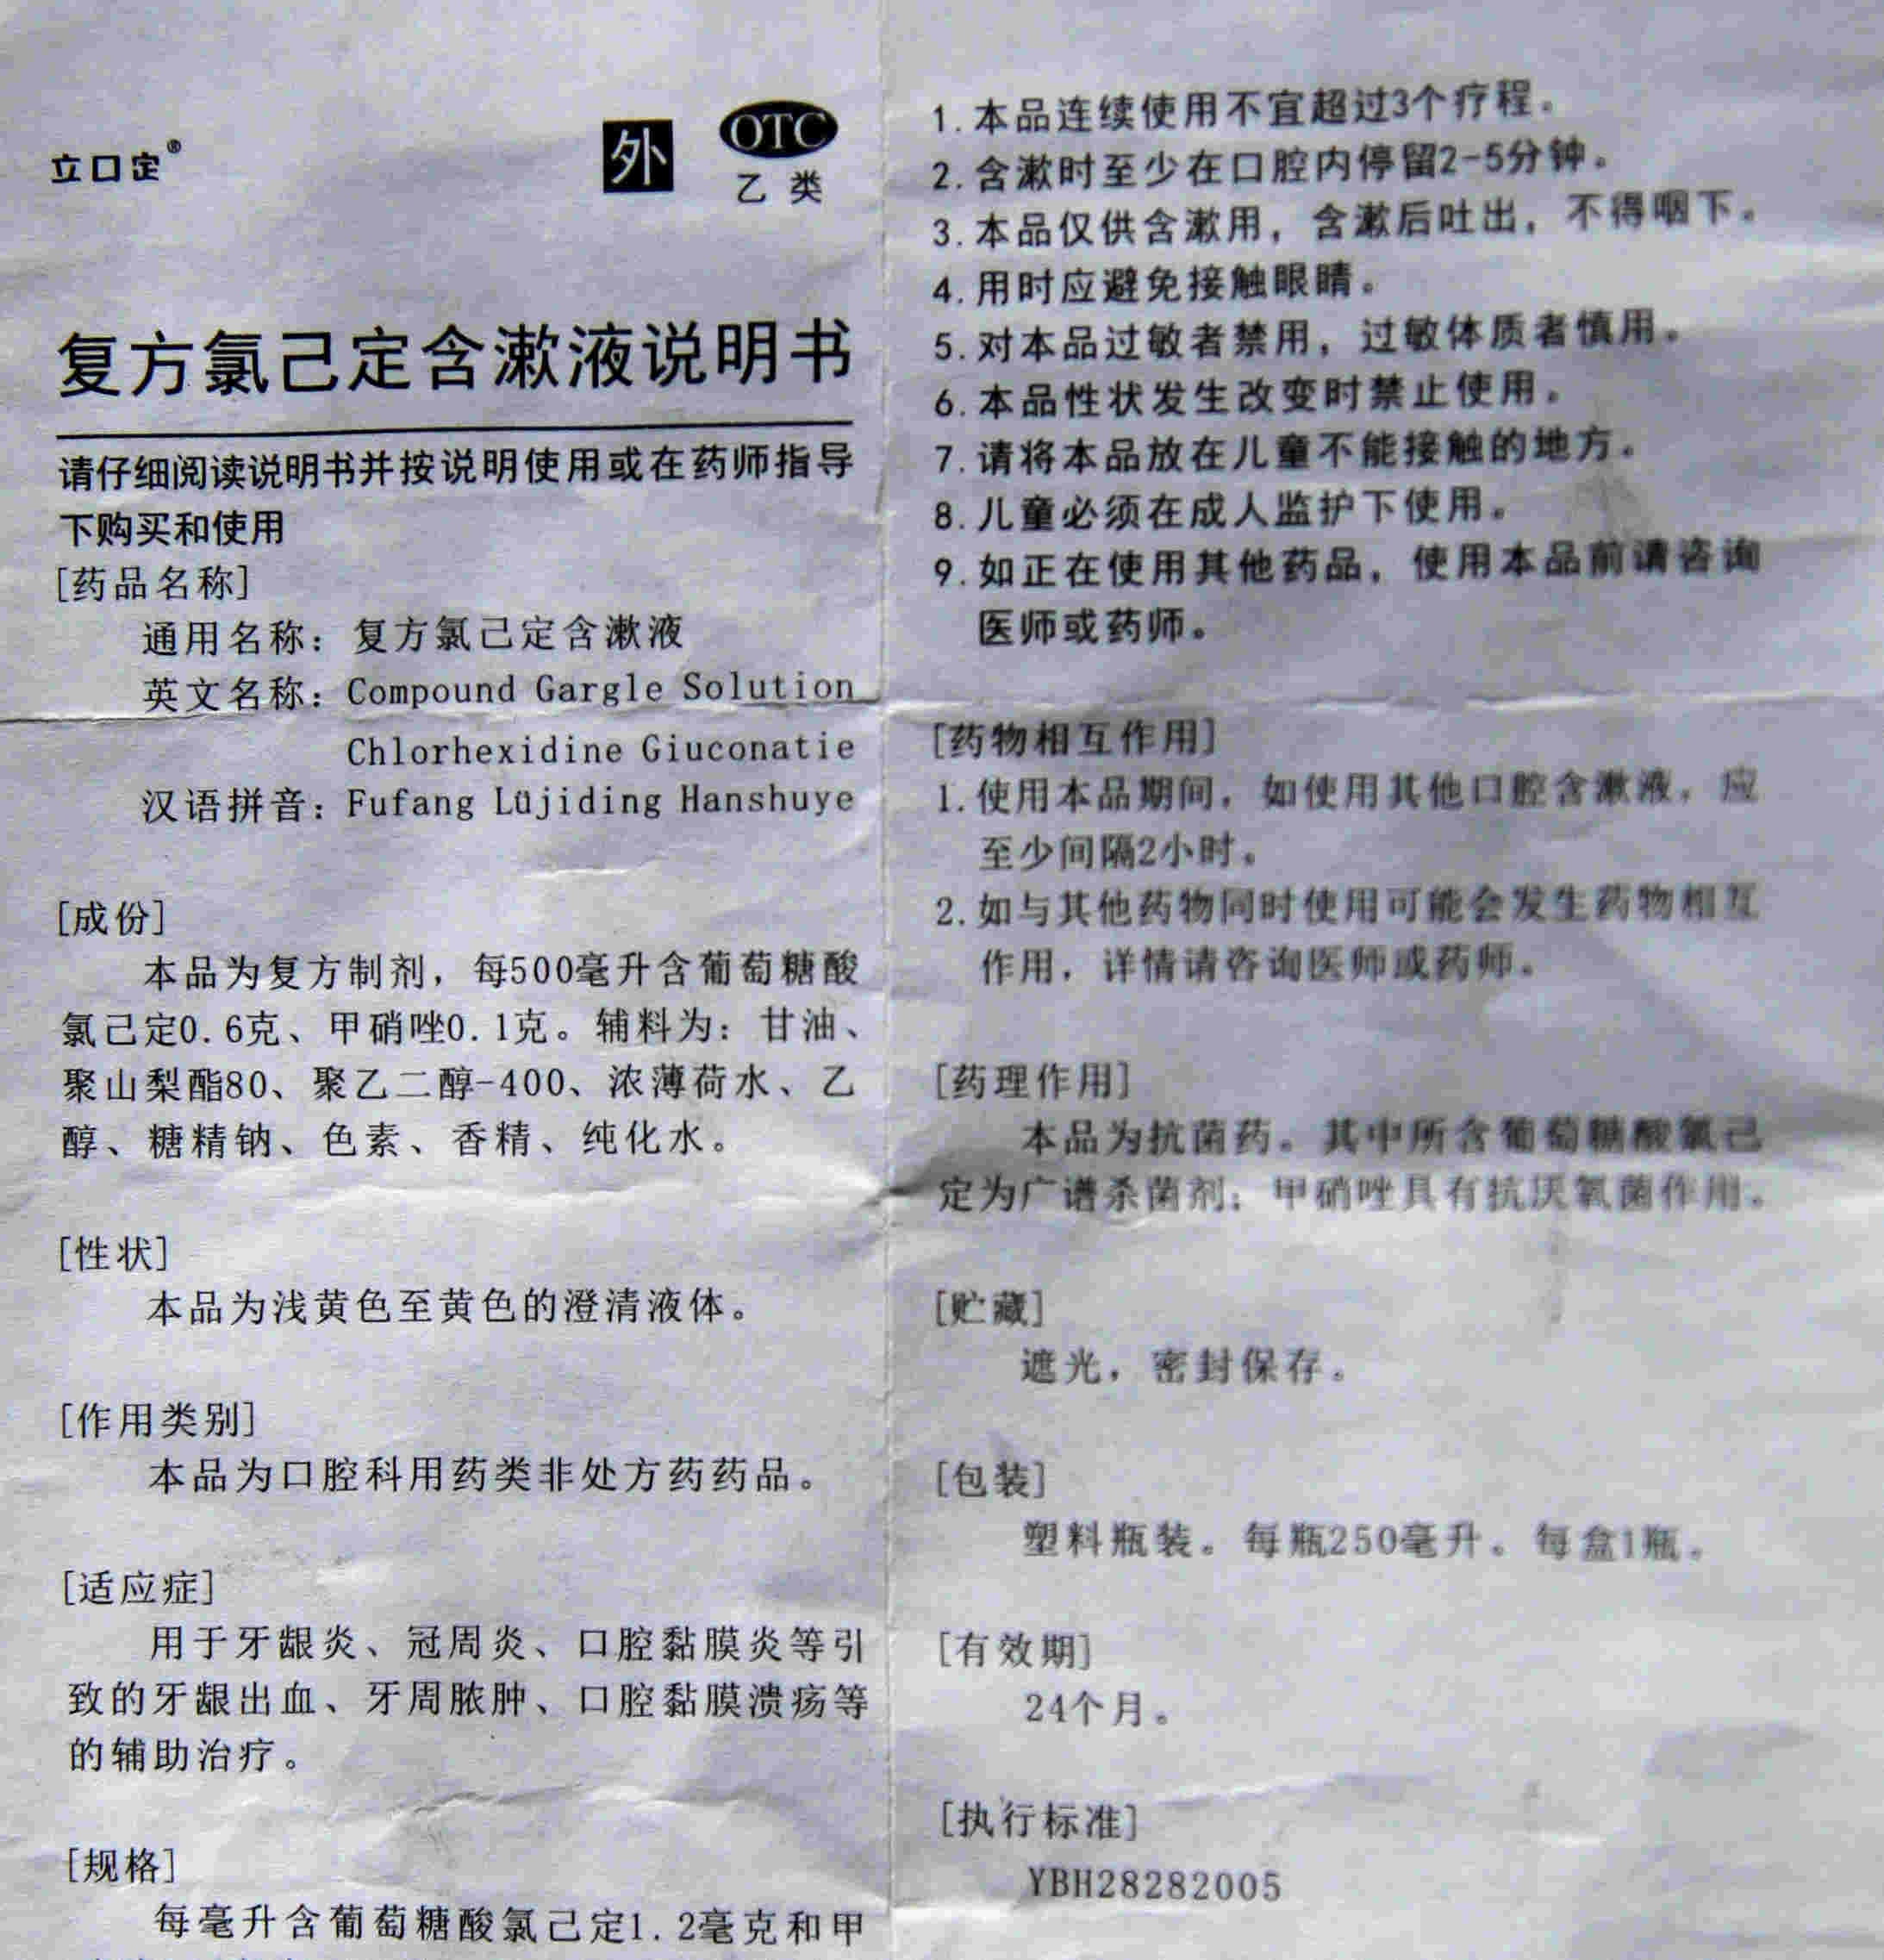 立口定®
外
OTC
乙类
复方氯己定含漱液说明书
请仔细阅读说明书并按说明使用或在药师指导
下购买和使用
[药品名称]
通用名称：复方氯己定含漱液
英文名称：Compound Gargle Solution
Chlorhexidine Giuconatie
汉语拼音：Fufang Lüjiding Hanshuye
[成份]
本品为复方制剂，每500毫升含葡萄糖酸
氯己定0.6克、甲硝唑0.1克。辅料为：甘油、
聚山梨酯80、聚乙二醇-400、浓薄荷水、乙
醇、糖精钠、色素、香精、纯化水。
[性状]
本品为浅黄色至黄色的澄清液体。
[作用类别]
本品为口腔科用药类非处方药药品。
[适应症]
用于牙龈炎、冠周炎、口腔黏膜炎等引
致的牙龈出血、牙周脓肿、口腔黏膜溃疡等
的辅助治疗。
[规格]
每毫升含葡萄糖酸氯己定1.2毫克和甲
1.本品连续使用不宜超过3个疗程。
2.含漱时至少在口腔内停留2-5分钟。
3.本品仅供含漱用，含漱后吐出，不得咽下。
4.用时应避免接触眼睛。
5.对本品过敏者禁用，过敏体质者慎用。
6.本品性状发生改变时禁止使用。
7.请将本品放在儿童不能接触的地方。
8.儿童必须在成人监护下使用。
9.如正在使用其他药品，使用本品前请咨询
医师或药师。
[药物相互作用]
1.使用本品期间，如使用其他口腔含漱液，应
至少间隔2小时。
2.如与其他药物同时使用可能会发生药物相互
作用，详情请咨询医师或药师。
[药理作用]
本品为抗菌药。其中所含葡萄糖酸氯己
定为广谱杀菌剂；甲硝唑具有抗厌氧菌作用。
[贮藏]
遮光，密封保存。
[包装]
塑料瓶装。每瓶250毫升。每盒1瓶。
[有效期]
24个月。
[执行标准]
YBH28282005